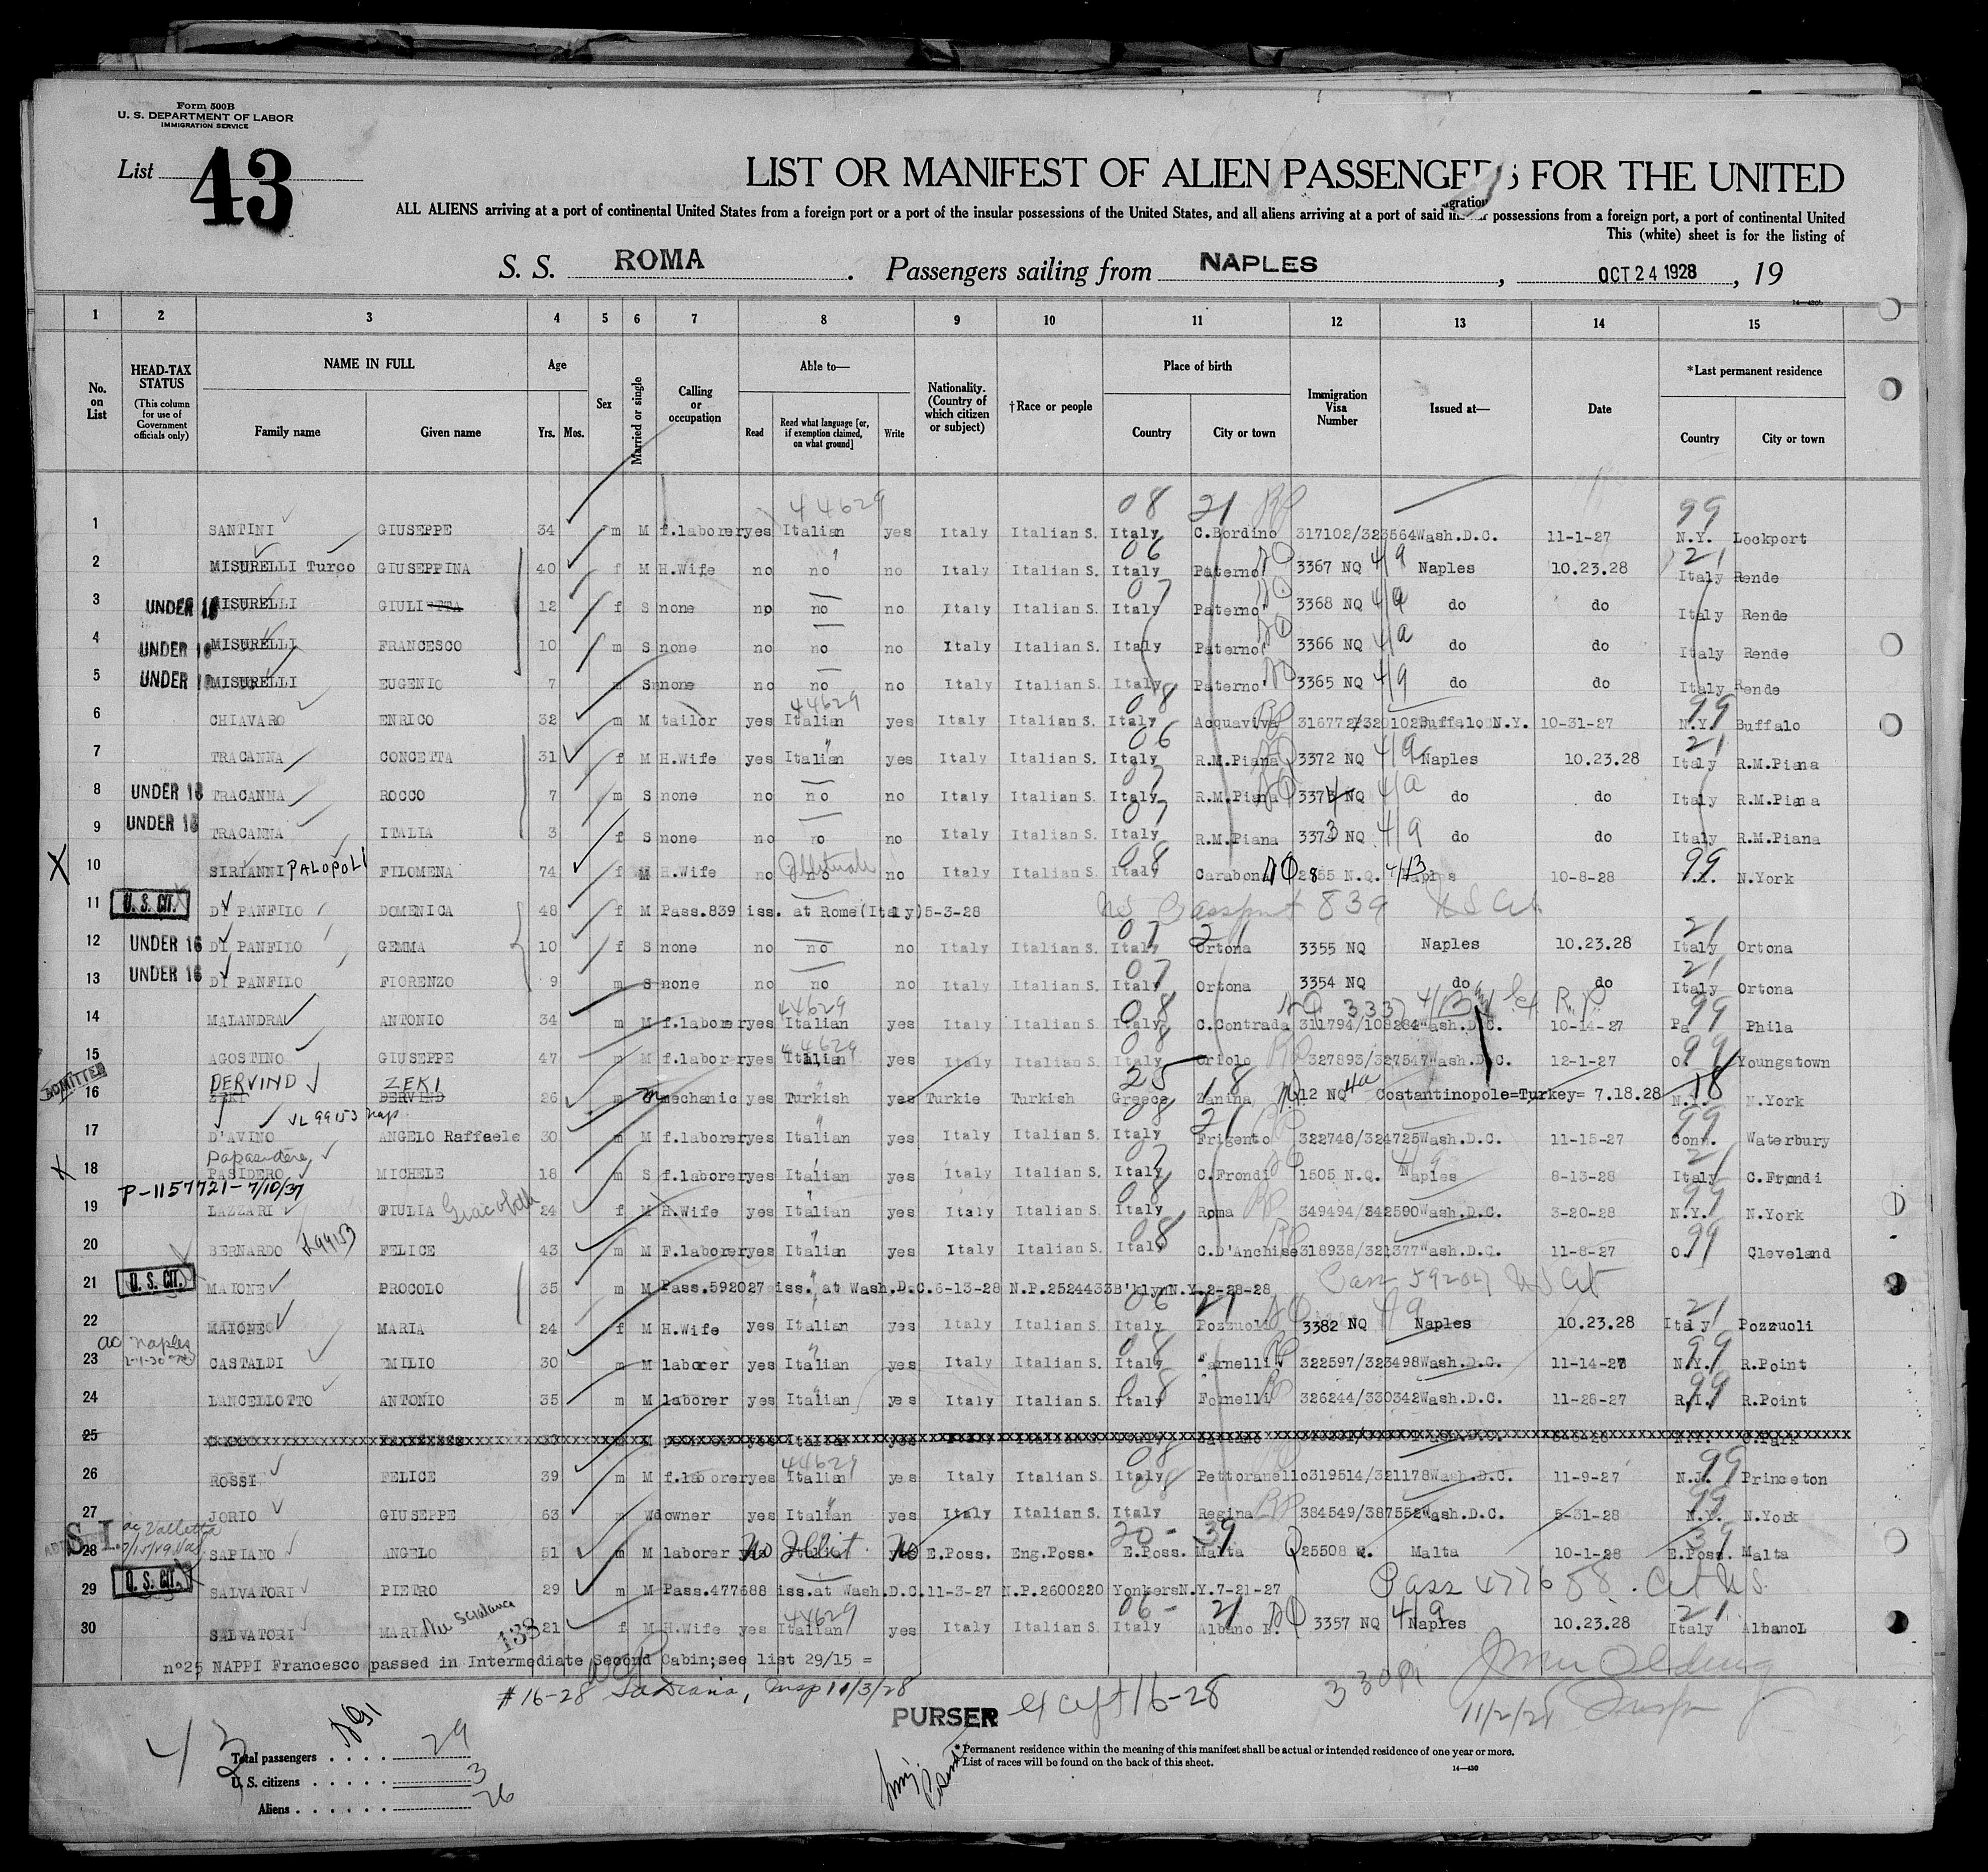 Form 500B
U. S. DEPARTMENT OF LABOR
IMMIGRATION SERVICE
List 43
LIST OR MANIFEST OF ALIEN PASSENGERS FOR THE UNITED
ALL ALIENS arriving at a port of continental United States from a foreign port or a port of the insular possessions of the United States, and all aliens arriving at a port of said possessions from a foreign port, a port of continental United
This (white) sheet is for the listing of
S. S. ROMA. Passengers sailing from NAPLES, OCT 24 1928, 19
14—430b
1 2 3 4 5 6 7 8 9 10 11 12 13 14 15
No. on List
HEAD-TAX STATUS (This column for use of Government officials only)
NAME IN FULL
Family name Given name
Age
Yrs. Mos.
Sex
Married or single
Calling or occupation
Able to—
Read Read what language [or, if exemption claimed, on what ground] Write
Nationality. (Country of which citizen or subject)
†Race or people
Place of birth
Country City or town
Immigration Visa Number
Issued at—
Date
*Last permanent residence
Country City or town
44629 08 21 RP 99
1 SANTINI GIUSEPPE 34 m M f.laborer yes Italian yes Italy Italian S. Italy C.Bordino 317102/323564 Wash.D.C. 11-1-27 N.Y. Lockport
2 MISURELLI Turco GIUSEPPINA 40 f M H.Wife no no no Italy Italian S. Italy Paterno 3367 NQ Naples 10.23.28 Italy Rende
3 UNDER 16 MISURELLI GIULIETTA 12 f S none no no no Italy Italian S. Italy Paterno 3368 NQ do do Italy Rende
4 UNDER 16 MISURELLI FRANCESCO 10 m S none no no no Italy Italian S. Italy Paterno 3366 NQ do do Italy Rende
5 UNDER 16 MISURELLI EUGENIO 7 m S none no no no Italy Italian S. Italy Paterno 3365 NQ do do Italy Rende
6 CHIAVARO ENRICO 32 m M tailor yes Italian yes Italy Italian S. Italy Acquaviva 316772/320102 Buffalo N.Y. 10-31-27 N.Y. Buffalo
7 TRACANNA CONCETTA 31 f M H.Wife yes Italian yes Italy Italian S. Italy R.M.Piana 3372 NQ Naples 10.23.28 Italy R.M.Piana
8 UNDER 16 TRACANNA ROCCO 7 m S none no no no Italy Italian S. Italy R.M.Piana NQ do do Italy R.M.Piana
9 UNDER 16 TRACANNA ITALIA 3 f S none no no no Italy Italian S. Italy R.M.Piana 3373 NQ do do Italy R.M.Piana
X 10 SIRIANNI PALOPOLI FILOMENA 74 f M H.Wife no no no Italy Italian S. Italy Carabona 2855 N.Q. Naples 10-8-28 N.York
11 U. S. CIT. DI PANFILO DOMENICA 48 f M Pass.839 iss. at Rome(Italy)5-3-28 US Passport 839 US Cit
12 UNDER 16 DI PANFILO GEMMA 10 f S none no no no Italy Italian S. Italy Ortona 3355 NQ Naples 10.23.28 Italy Ortona
13 UNDER 16 DI PANFILO FIORENZO 9 m S none no no no Italy Italian S. Italy Ortona 3354 NQ do do Italy Ortona
14 MALANDRA ANTONIO 34 m M f.laborer yes Italian yes Italy Italian S. Italy C.Contrada 311794/108284 Wash.D.C. 10-14-27 Pa Phila
15 AGOSTINO GIUSEPPE 47 m M f.laborer yes Italian yes Italy Italian S. Italy Oriolo 327893/327547 Wash.D.C. 12-1-27 O. Youngstown
ADMITTED DERVIND ZEKI
16 ZEKI DERVIND 26 m mechanic yes Turkish yes Turkie Turkish Greece Zanina 12 NQ Costantinopole=Turkey= 7.18.28 N.Y. N.York
VL 99153 Nap
17 D'AVINO ANGELO Raffaele 30 m M f.laborer yes Italian yes Italy Italian S. Italy Frigento 322748/324725 Wash.D.C. 11-15-27 Conn. Waterbury
Papasidero
X 18 PASIDERO MICHELE 18 m S f.laborer yes Italian yes Italy Italian S. Italy C.Frondi 1505 N.Q. Naples 8-13-28 Italy C.Frondi
P-1157721-7/10/37
19 LAZZARI GIULIA 24 f M H.Wife yes Italian yes Italy Italian S. Italy Roma 349494/342590 Wash.D.C. 3-20-28 N.Y. N.York
20 BERNARDO FELICE 43 m M F.laborer yes Italian yes Italy Italian S. Italy C.D'Anchise 318938/321377 Wash.D.C. 11-8-27 O. Cleveland
21 U. S. CIT. MAIONE PROCOLO 35 m M Pass.592027 iss. at Wash.D.C.6-13-28 N.P.2524433 B'klyn N.Y.2-28-28 US Cit
22 MAIONE MARIA 24 f M H.Wife yes Italian yes Italy Italian S. Italy Pozzuoli 3382 NQ Naples 10.23.28 Italy Pozzuoli
ac Naples
23 CASTALDI EMILIO 30 m M laborer yes Italian yes Italy Italian S. Italy 322597/323498 Wash.D.C. 11-14-27 N.Y. R.Point
24 LANCELLOTTO ANTONIO 35 m M laborer yes Italian yes Italy Italian S. Italy Fornelli 326244/330342 Wash.D.C. 11-28-27 R.I. R.Point
25
26 ROSSI FELICE 39 m M f.laborer yes Italian yes Italy Italian S. Italy Pettoranello 319514/321178 Wash.D.C. 11-9-27 N.J. Princeton
27 JORIO GIUSEPPE 63 m Wd owner yes Italian yes Italy Italian S. Italy Regina 384549/387552 Wash.D.C. 5-31-28 N.Y. N.York
S.I. ac Valletta
28 SAPIANO ANGELO 51 m M laborer No Illit No E.Poss. Eng.Poss. E.Poss. Malta 25508 Malta 10-1-28 E.Poss. Malta
29 U. S. CIT. SALVATORI PIETRO 29 m M Pass.477688 iss.at Wash.D.C.11-3-27 N.P.2600220 Yonkers N.Y.7-21-27 Pass 477688 Cit US
30 SALVATORI MARIA 138 21 f M H.Wife yes Italian yes Italy Italian S. Italy Albano L. 3357 NQ Naples 10.23.28 Italy Albano L
n°25 NAPPI Francesco passed in Intermediate Second Cabin;see list 29/15 =
#16-28 Insp 11/3/28
PURSER except 16-28
11/2/28 Insp
43
Total passengers . . . . 29
U. S. citizens . . . . . 3
Aliens . . . . . . 26
*Permanent residence within the meaning of this manifest shall be actual or intended residence of one year or more.
†List of races will be found on the back of this sheet.
14—430